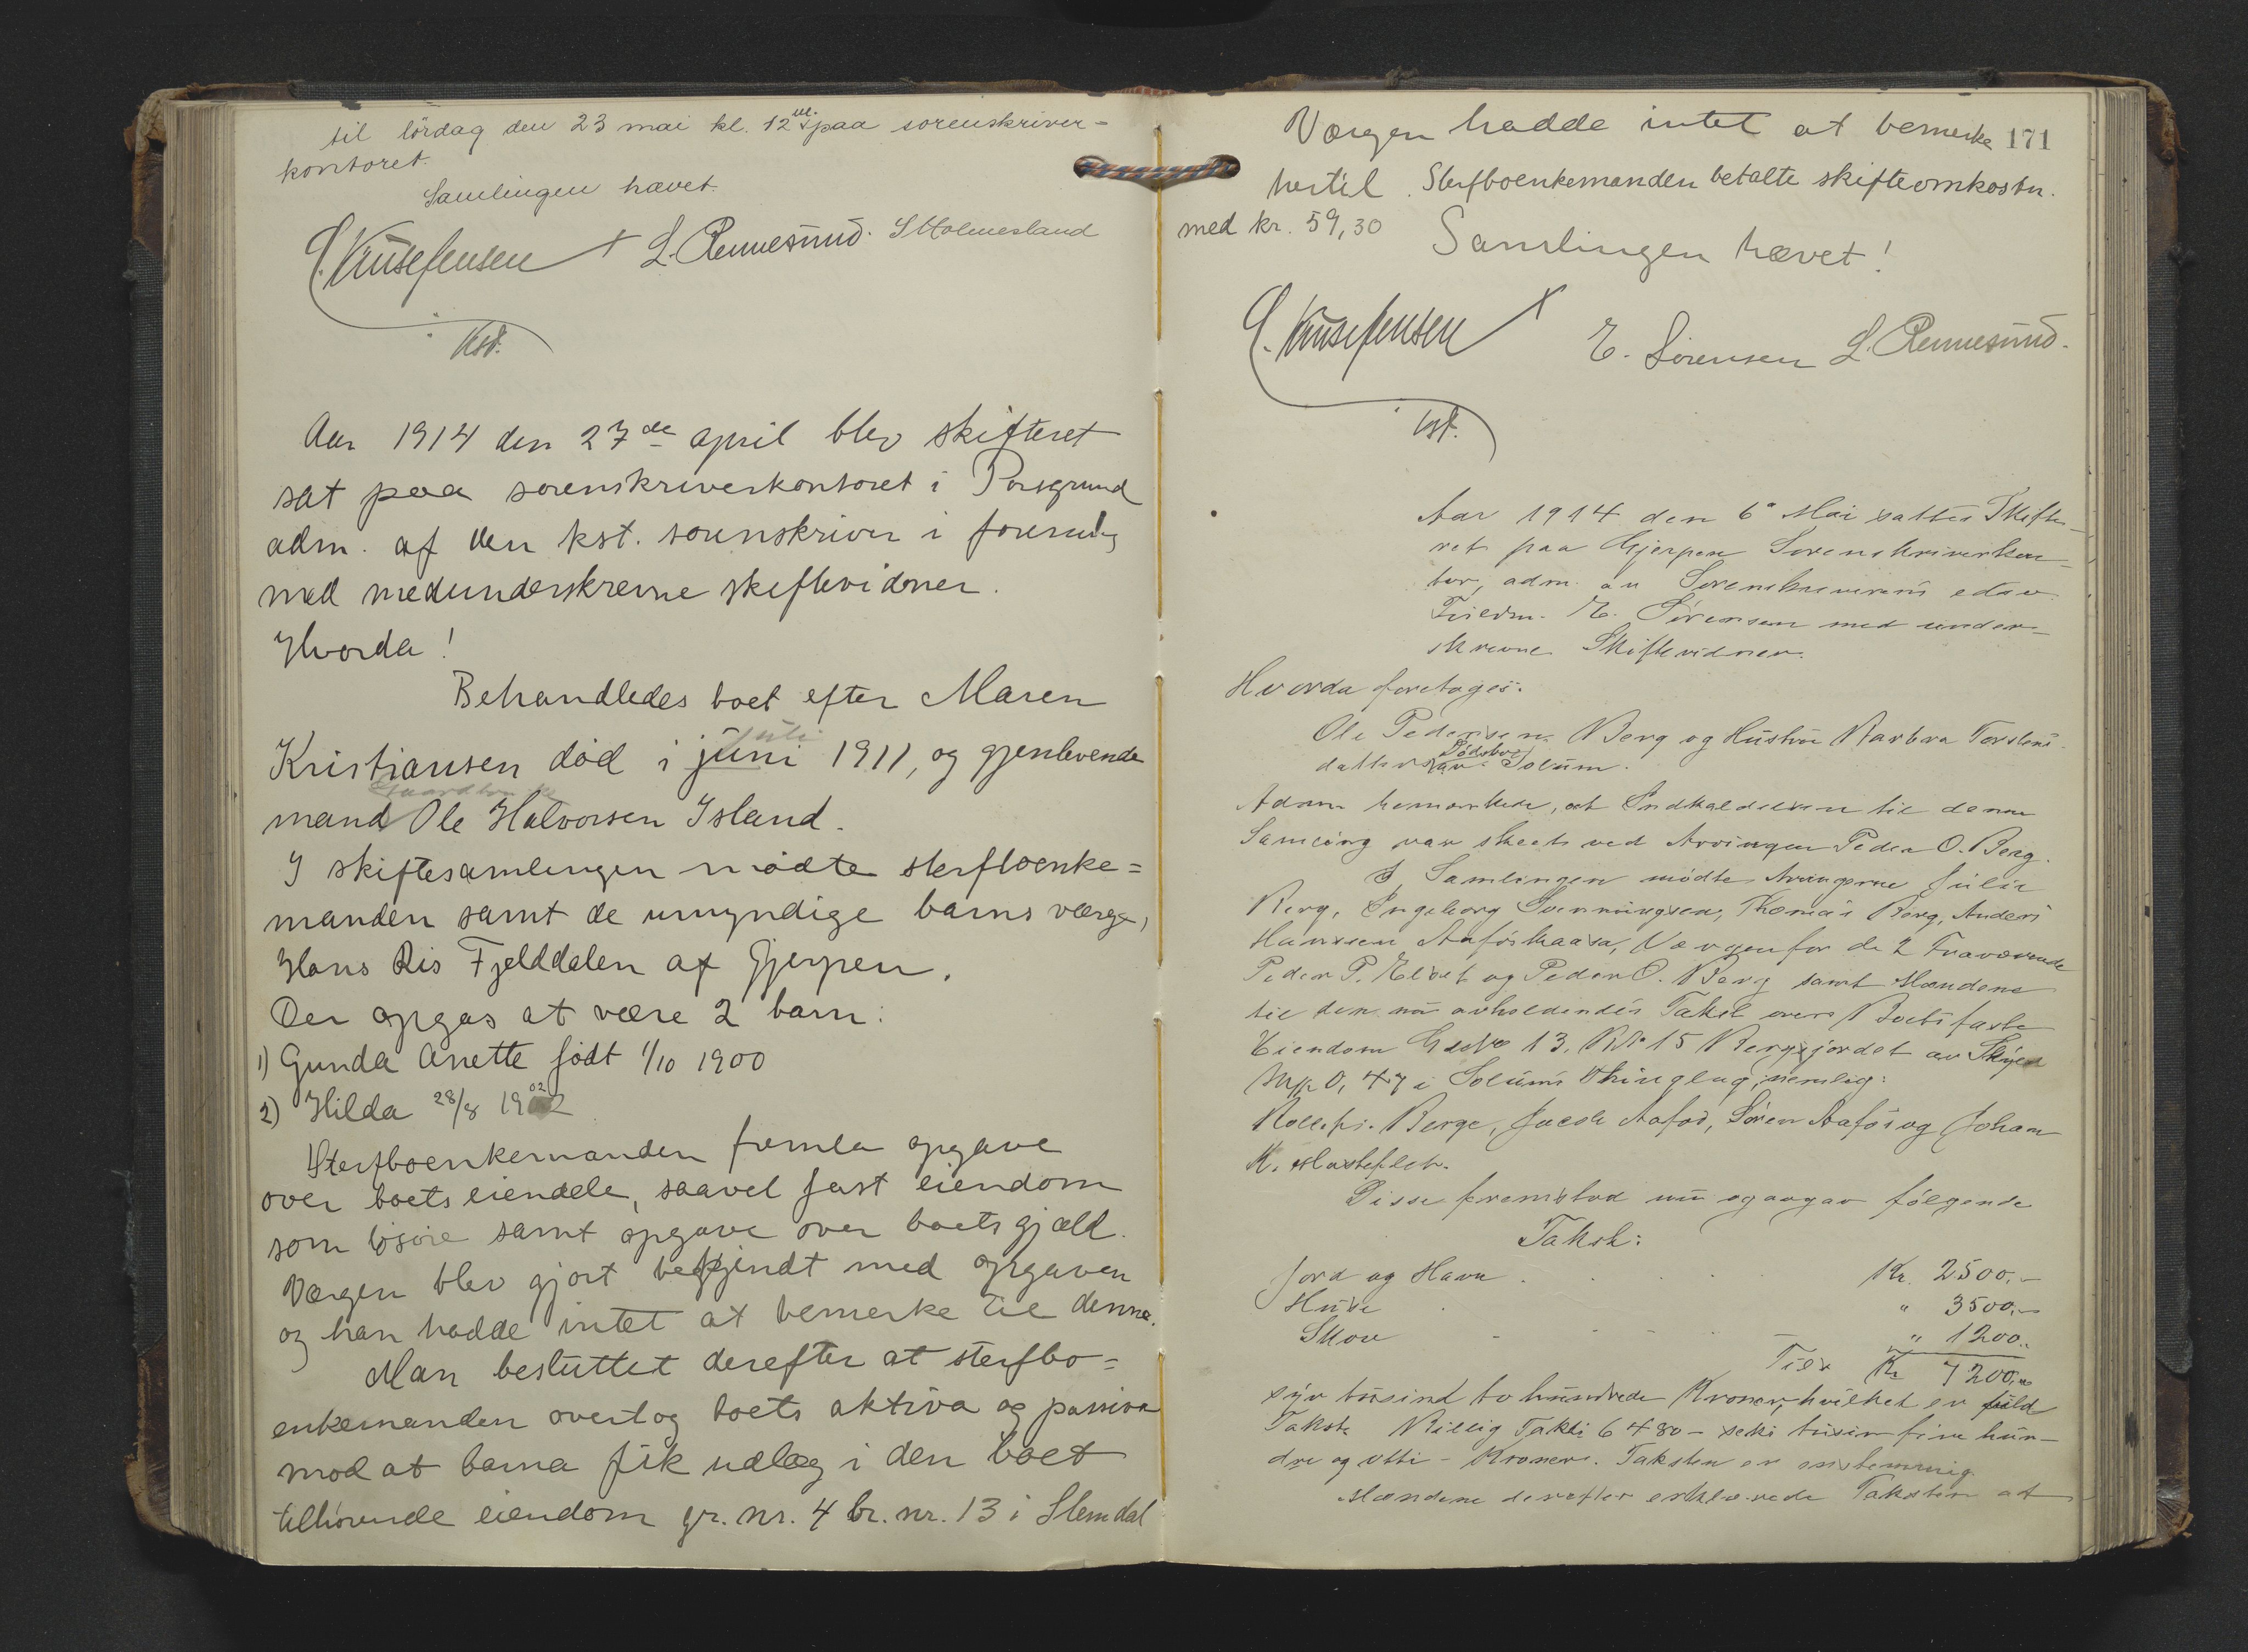 til lördag den 23 mai kl. 12 paa sorenskriver-
kontoret.
Samlingen hævet.
L. Rennesund. S Holmesland
kst.
Aar 1914 den 27de april blev skifteret
sat paa sorenskriverkontoret i Porsgrund
adm. af den kst. sorenskriver i forening
med medunderskrevne skiftevidner.
Hvorda!
Behandledes boet efter Maren
juli
Kristiansen död i juni 1911, og gjenlevende
Gaardbruker
mand Ole Halvorsen Island.
I skiftesamlingen mödte sterfboenke=
manden samt de umyndige barns værge,
Hans Ris Fjelddalen af Gjerpen.
Der opgas at være 2 barn:
1) Gunda Anette födt 1/10 1900
2) Hilda 28/8 1902
Sterfboenkemanden fremla opgave
over boets eiendele, saavel fast eiendom
som lösöre samt opgave over boets gjæld.
Værgen blev gjort bekjendt med opgaven
og han hadde intet at bemerke til denne.
Man besluttet derefter at sterfbo=
enkemanden overtog boets aktiva og passiva
mod at barna fik udlæg i den boet
tilhörende eiendom gr. nr. 4 br. nr. 13 i Slemdal
171
Værgen hadde intet at bemerke
hertil. Sterfboenkemanden betalte skifteomkostn.
med kr. 59,30
Samlingen hævet!
E. Sörensen L. Rennesund.
kst.
Aar 1914 den 6' Mai sattes Skifte-
ret paa Gjerpen Sorenskriverkon-
tor, adm. av Sorenskriverens edsv.
Fuldm. E. Sörensen med under-
skrevne Skiftevidner.
Hvorda foretoges:
Ole Pedersen Berg og Hustru Barbra Torstens-
Dödsbo
datter av Solum.
Adm. bemærkede, at Indkaldelsen til denne
Samling var skeet ved Arvingen Peder O. Berg.
I Samlingen mödte Arvingerne Julie
Berg, Ingeborg Svenningsen, Thomas Berg, Anders
Hanssen Aafoskaasa, Værgen for de 2 Fraværende
Peder P. Elset og Peder O. Berg samt Mændene
til den nu avholdendes Takst over Boets faste
Eiendom G No 13, B No 15 Bergsjordet av Skyld
Mk 0,47 i Solums Thinglag, nemlig:
Berge, Jacob Aafos, Sören Aafos og Johan
K.
Disse fremstod nu og avgav fölgende
Takst:
Jord og Havn . . . . Kr. 2500,-
Huse . " 3500,-
Skov - - - - " 1200,,
Tils Kr 7200,,
syv tusind to hundrede Kroner, hvilket er fuld
Takst. Billig Takst 6480 - seks tusin fire hun-
dre og otti - Kroner. Taksten er enstemmig.
Mændene derefter erklærede Taksten at